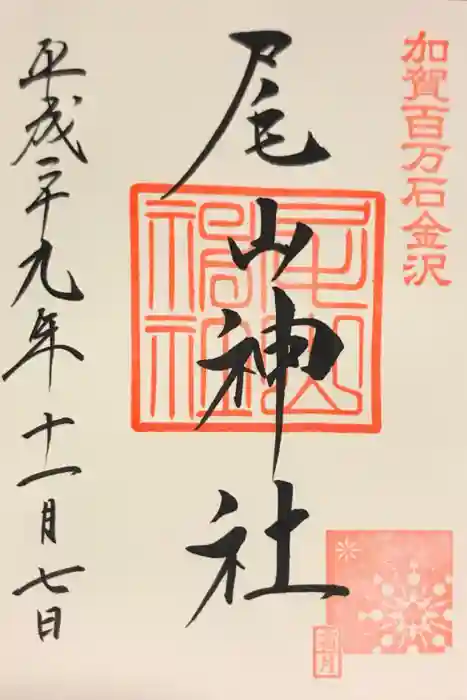 加賀百万石金沢
尾山神社
平成二十九年十一月七日